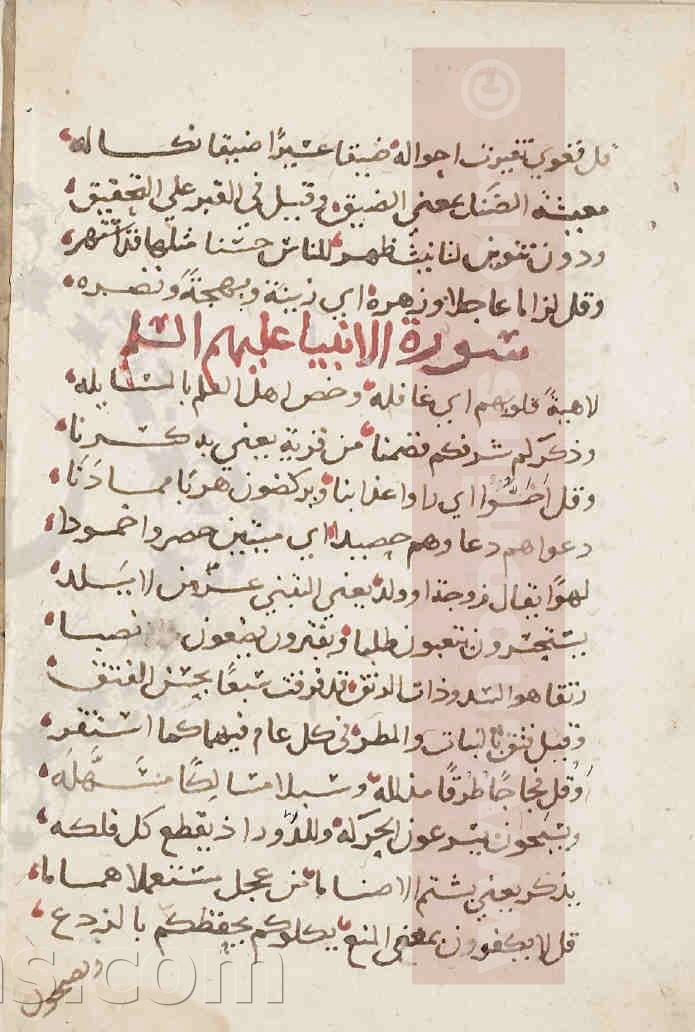 قل فغوي تغيرت احواله ضيقا عسيرا ضيقا نكاله
معيشة الضنك بمعنى الضيق وقيل في القبر علي التحقيق
ودون تعويض لنا نبث ظهر للناس حسنا مثلها قد اشتهر
وقل لزاما عاجلا وزهرة اي زينة وبهجة ونضره
سورة الانبيا عليهم السلم
لاهية قلوبهم اي غافله وخص اهل العلم بالمسايله
وذكركم شرفكم قصمنا من قرية يعني به كسرنا
وقل احسوا اي راوا عذابنا ويركضون هربا مما دنا
دعواهم دعاوهم حصيدا اي ميتين حصروا خمودا
لهوا يقال زوجة او ولد يعني التبني عز من لا يلد
يستحسرون يتعبون طلبا ويفترون يضعون نصبا
رتقا هو السد وذات الرتق قد فرقت سبعا بحسن الفتق
وقيل فتق بالنبات والمطر في كل عام فيهما كما استقر
وقل فجاجا طرقا مذلله وسبلا مسالكا مسهله
ويسبحون يسرعون الحركه وللدور اذ يقطع كل فلكه
يذكر يعني يشتم الاصناما من عجل مستعملا هماما
قل لا يكفون بمعنى المنع يكلوكم يحفظكم بالردع
ويصحبون
www.
ms.com
©